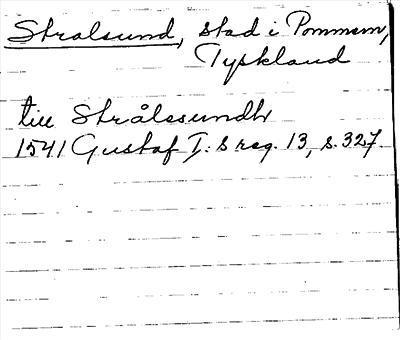 Stralsund, stad i Pommern,
Tyskland
till Strålssundh
1541 Gustaf I:s reg. 13, s. 327.